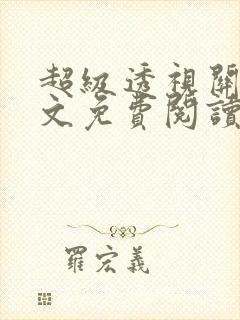 超級透視關
文免費閱讀
羅宏義